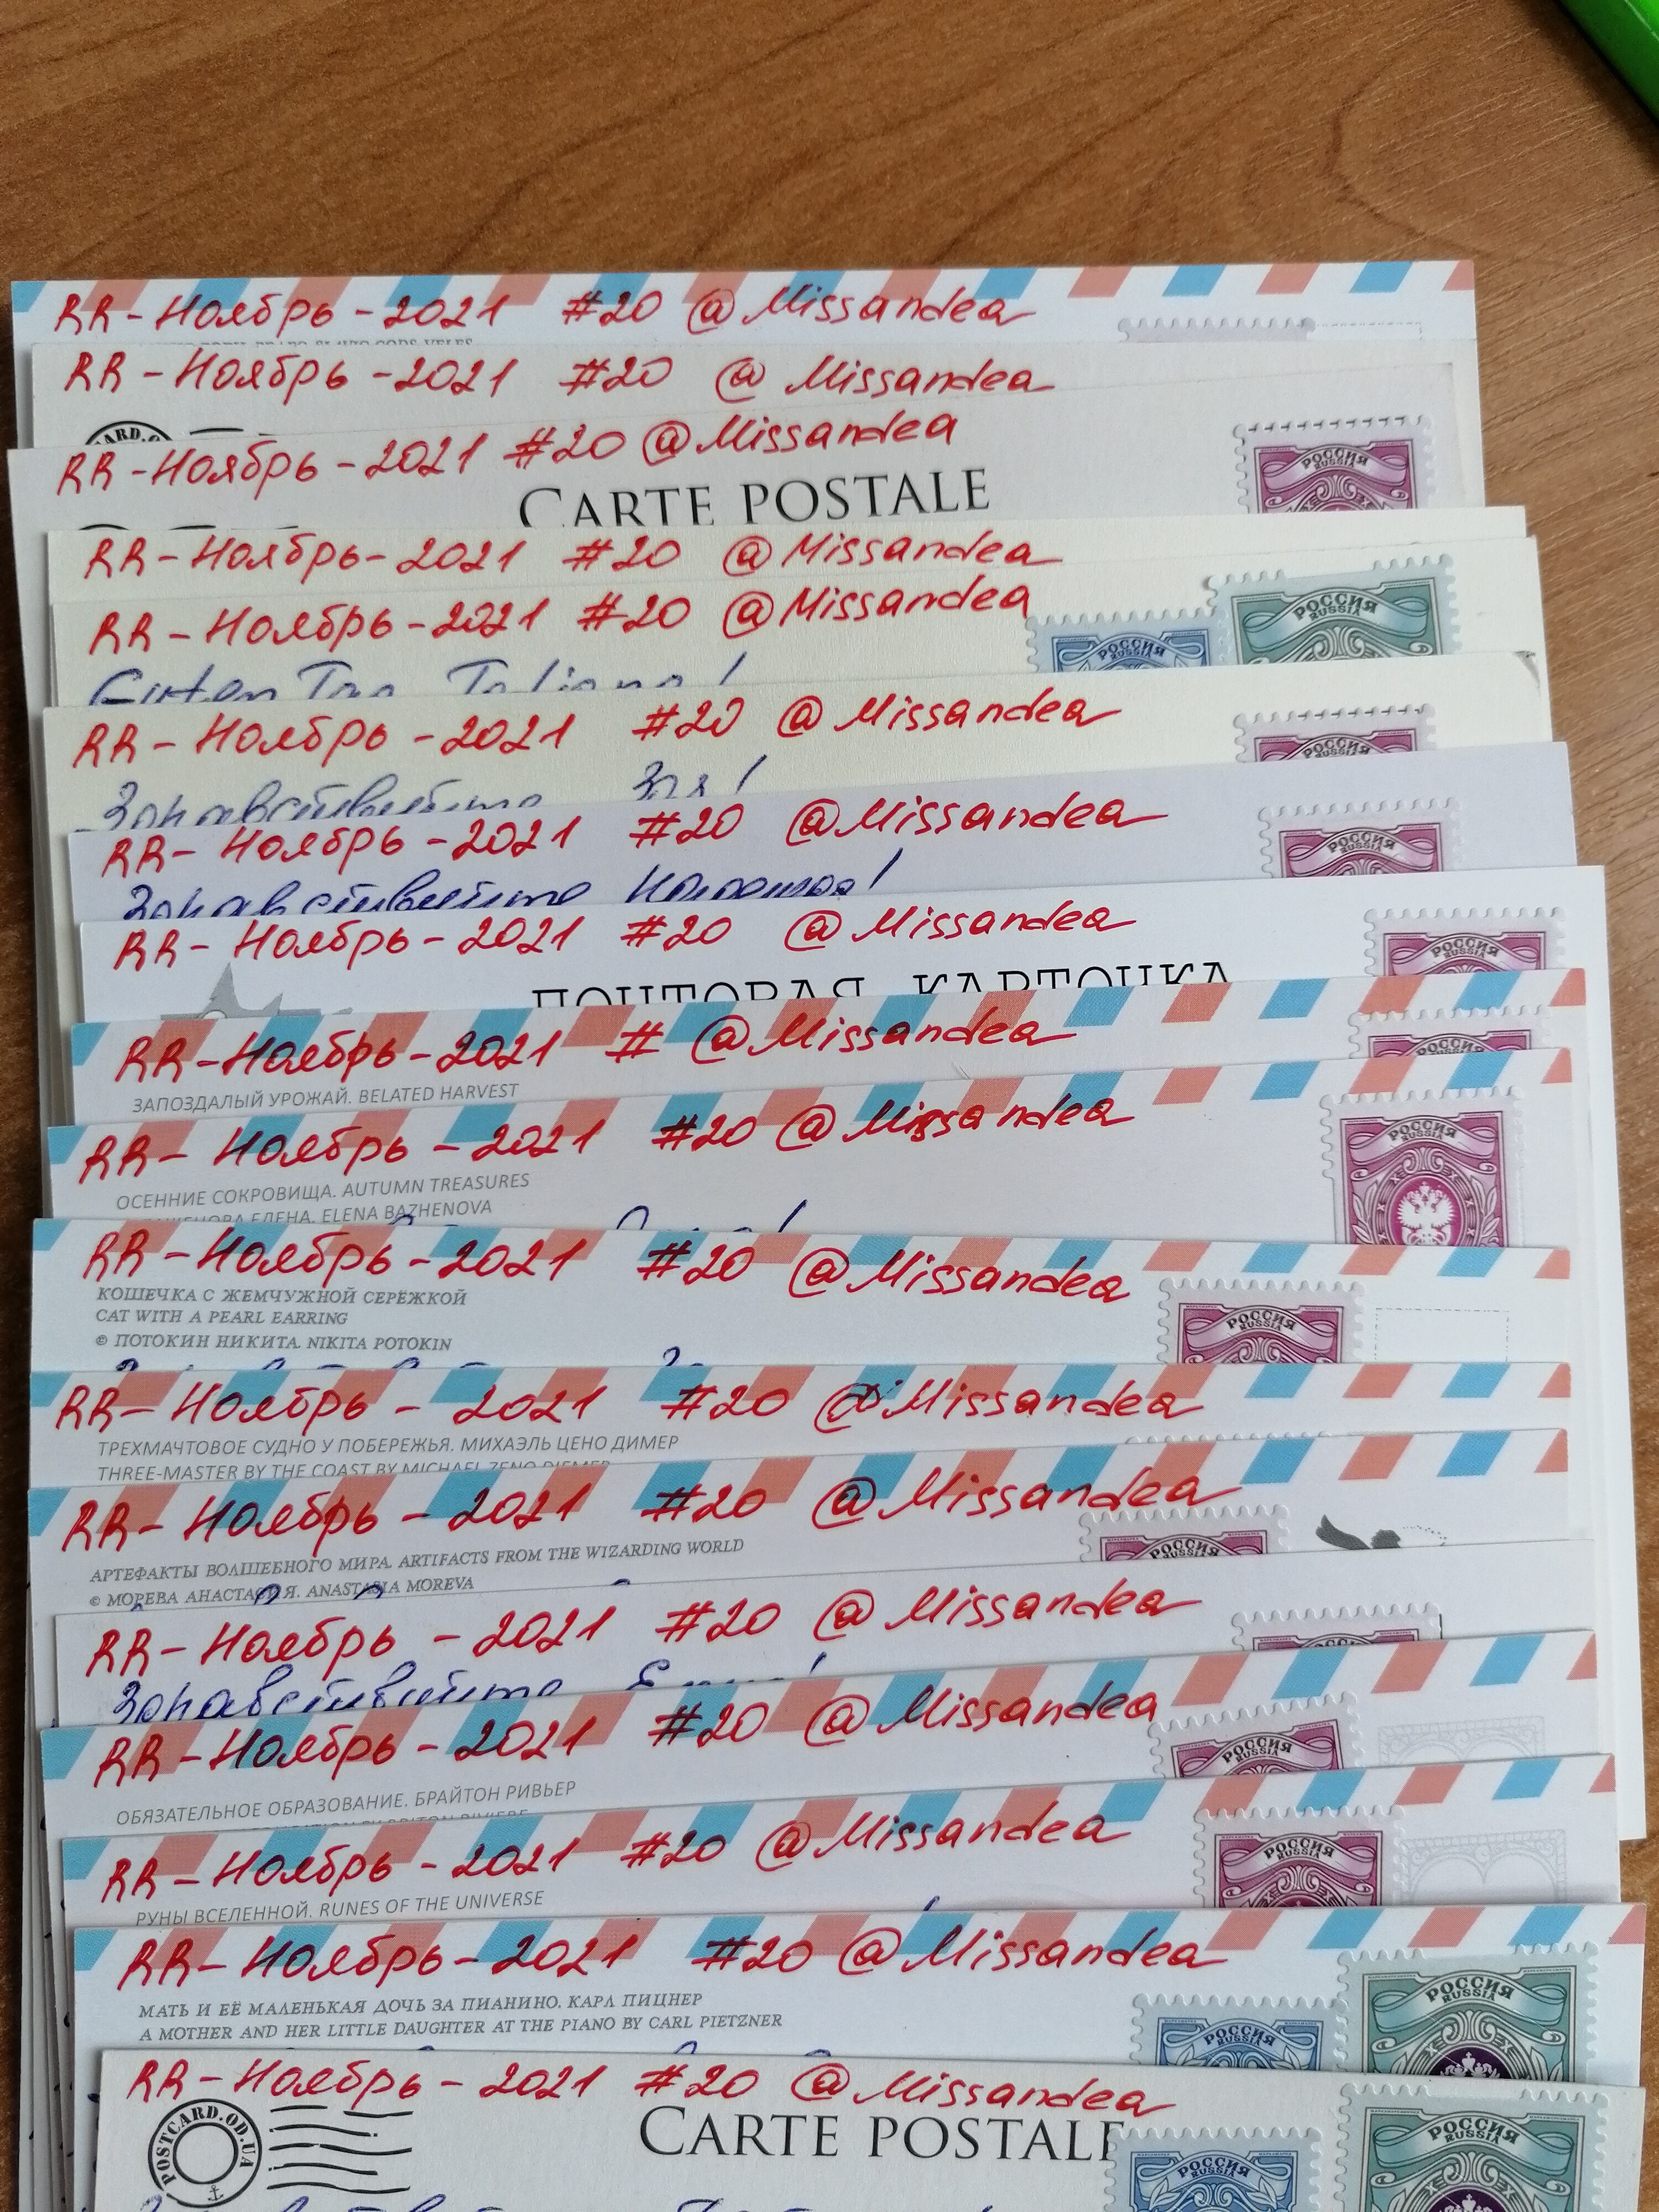 RR-Ноябрь-2021 #20 @Missandea
RR-Ноябрь-2021 #20 @Missandea
RR-Ноябрь-2021 #20 @Missandea
CARTE POSTALE
РОССИЯ
RUSSIA
RR-Ноябрь-2021 #20 @Missandea
RR-Ноябрь-2021 #20 @Missandea
РОССИЯ
RUSSIA
РОССИЯ
Guten Tag Tatjana!
RR-Ноябрь-2021 #20 @Missandea
РОССИЯ
Здравствуйте Зоя!
RR-Ноябрь-2021 #20 @Missandea
РОССИЯ
RUSSIA
Здравствуйте Наташа!
RR-Ноябрь-2021 #20 @Missandea
РОССИЯ
RUSSIA
ПОЧТОВАЯ КАРТОЧКА
RR-Ноябрь-2021 # @Missandea
РОССИЯ
ЗАПОЗДАЛЫЙ УРОЖАЙ. BELATED HARVEST
RR-Ноябрь-2021 #20 @Missandea
РОССИЯ
RUSSIA
ОСЕННИЕ СОКРОВИЩА. AUTUMN TREASURES
ЕЛЕНА. ELENA BAZHENOVA
RR-Ноябрь-2021 #20 @Missandea
КОШЕЧКА С ЖЕМЧУЖНОЙ СЕРЁЖКОЙ
CAT WITH A PEARL EARRING
© ПОТОКИН НИКИТА. NIKITA POTOKIN
РОССИЯ
RUSSIA
RR-Ноябрь-2021 #20 @Missandea
ТРЕХМАЧТОВОЕ СУДНО У ПОБЕРЕЖЬЯ. МИХАЭЛЬ ЦЕНО ДИМЕР
THREE-MASTER BY THE COAST BY MICHAEL ZENO DIEMER
RR-Ноябрь-2021 #20 @Missandea
АРТЕФАКТЫ ВОЛШЕБНОГО МИРА. ARTIFACTS FROM THE WIZARDING WORLD
© МОРЕВА АНАСТАСИЯ. ANASTASIA MOREVA
РОССИЯ
RR-Ноябрь-2021 #20 @Missandea
Здравствуйте
RR-Ноябрь-2021 #20 @Missandea
РОССИЯ
RUSSIA
ОБЯЗАТЕЛЬНОЕ ОБРАЗОВАНИЕ. БРАЙТОН РИВЬЕР
RR-Ноябрь-2021 #20 @Missandea
РОССИЯ
RUSSIA
РУНЫ ВСЕЛЕННОЙ. RUNES OF THE UNIVERSE
RR-Ноябрь-2021 #20 @Missandea
МАТЬ И ЕЁ МАЛЕНЬКАЯ ДОЧЬ ЗА ПИАНИНО. КАРЛ ПИЦНЕР
A MOTHER AND HER LITTLE DAUGHTER AT THE PIANO BY CARL PIETZNER
РОССИЯ
RUSSIA
РОССИЯ
RUSSIA
RR-Ноябрь-2021 #20 @Missandea
POSTCARD.OD.UA
CARTE POSTALE
РОССИЯ
RUSSIA
РОССИЯ
RUSSIA